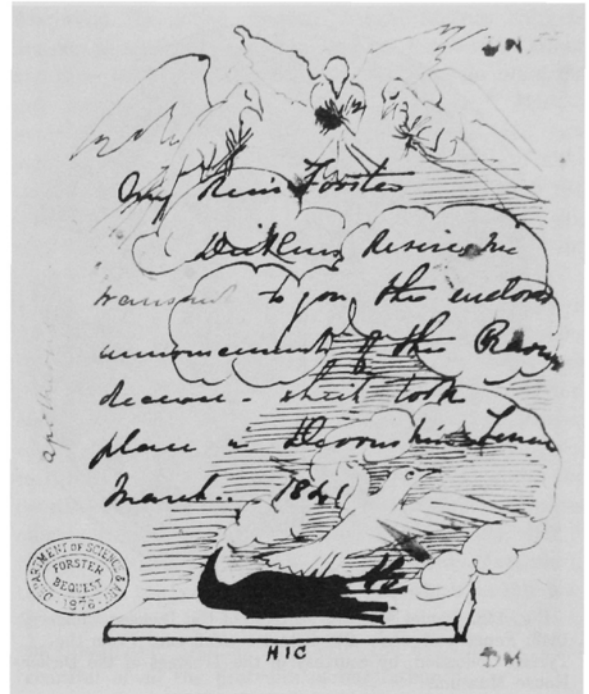 My Dear Forster
Dickens desires me
transmit to you the enclosed
announcement of the Raven's
decease - which took
place in Devonshire Terrace
March.. 1841
apotheosis
DEPARTMENT OF SCIENCE & ART
FORSTER
BEQUEST
1876
HIC
DM